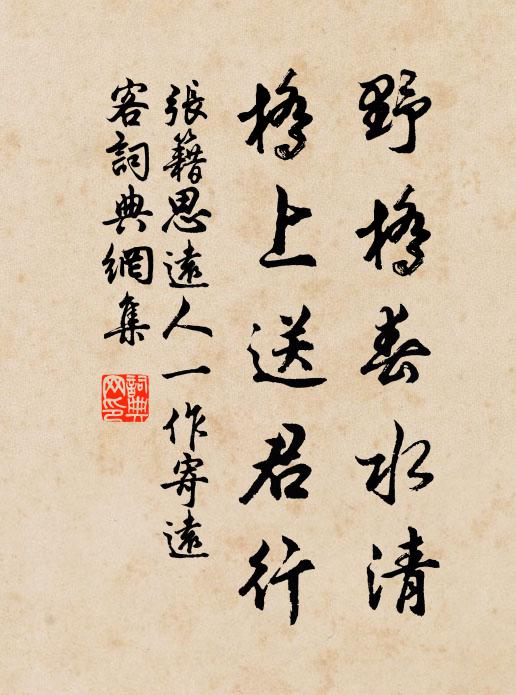 野橋春水清
橋上送君行
張籍思遠人一作寄遠
客詞典網集
詞典
网印